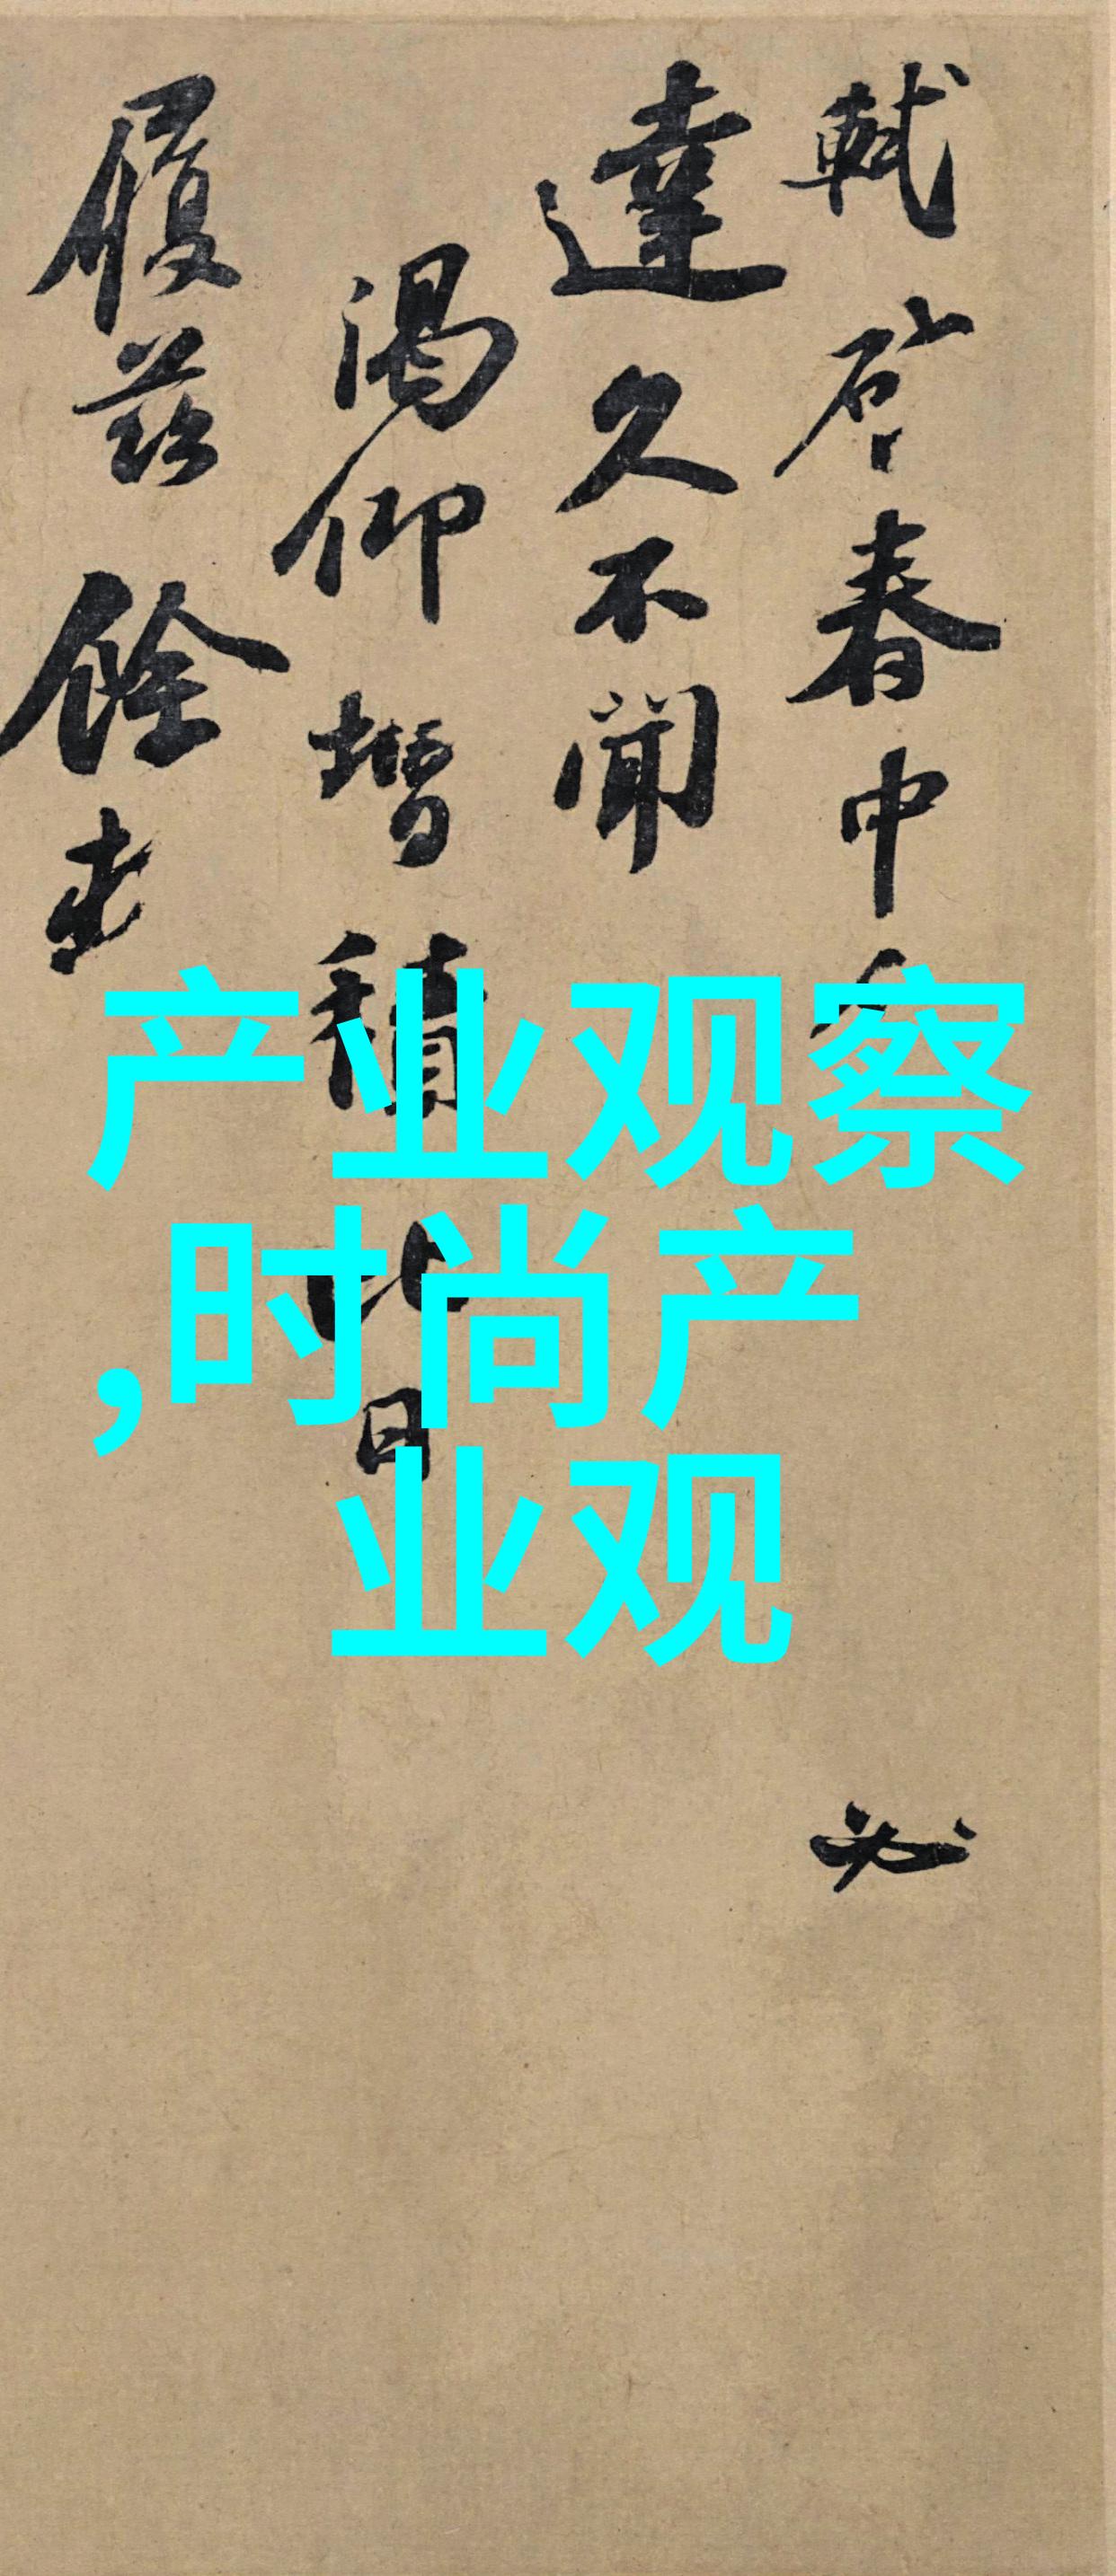 軾啓春中
必
達久不聞
渴仰增積比日
履茲餘
产业观察
,时尚产
业观